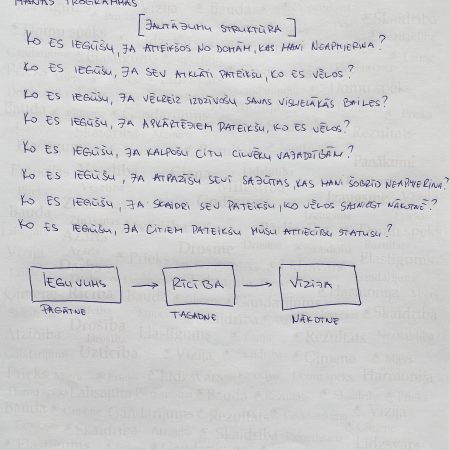 MANAS PROGRAMMAS
[JAUTĀJUMU STRUKTŪRA]
KO ES IEGŪŠU, JA ATTEIKŠOS NO DOMĀM, KAS MANI NEAPMIERINA?
KO ES IEGŪŠU, JA SEV ATKLĀTI PATEIKŠU, KO ES VĒLOS?
KO ES IEGŪŠU, JA VĒLREIZ IZDZĪVOŠU SAVAS VISLIELĀKĀS BAILES?
KO ES IEGŪŠU, JA APKĀRTĒJIEM PATEIKŠU, KO ES VĒLOS?
KO ES IEGŪŠU, JA KALPOŠU CITU CILVĒKU VAJADZĪBĀM?
KO ES IEGŪŠU, JA ATPAZĪŠU SEVĪ SAJŪTAS, KAS MANI ŠOBRĪD NEAPMIERINA?
KO ES IEGŪŠU, JA SKAIDRI SEV PATEIKŠU, KO VĒLOS SASNIEGT NĀKOTNĒ?
KO ES IEGŪŠU, JA CITIEM PATEIKŠU MŪSU ATTIECĪBU STATUSU?
IEGUVUMS → RĪCĪBA → VĪZIJA
PAGĀTNE TAGADNE NĀKOTNE